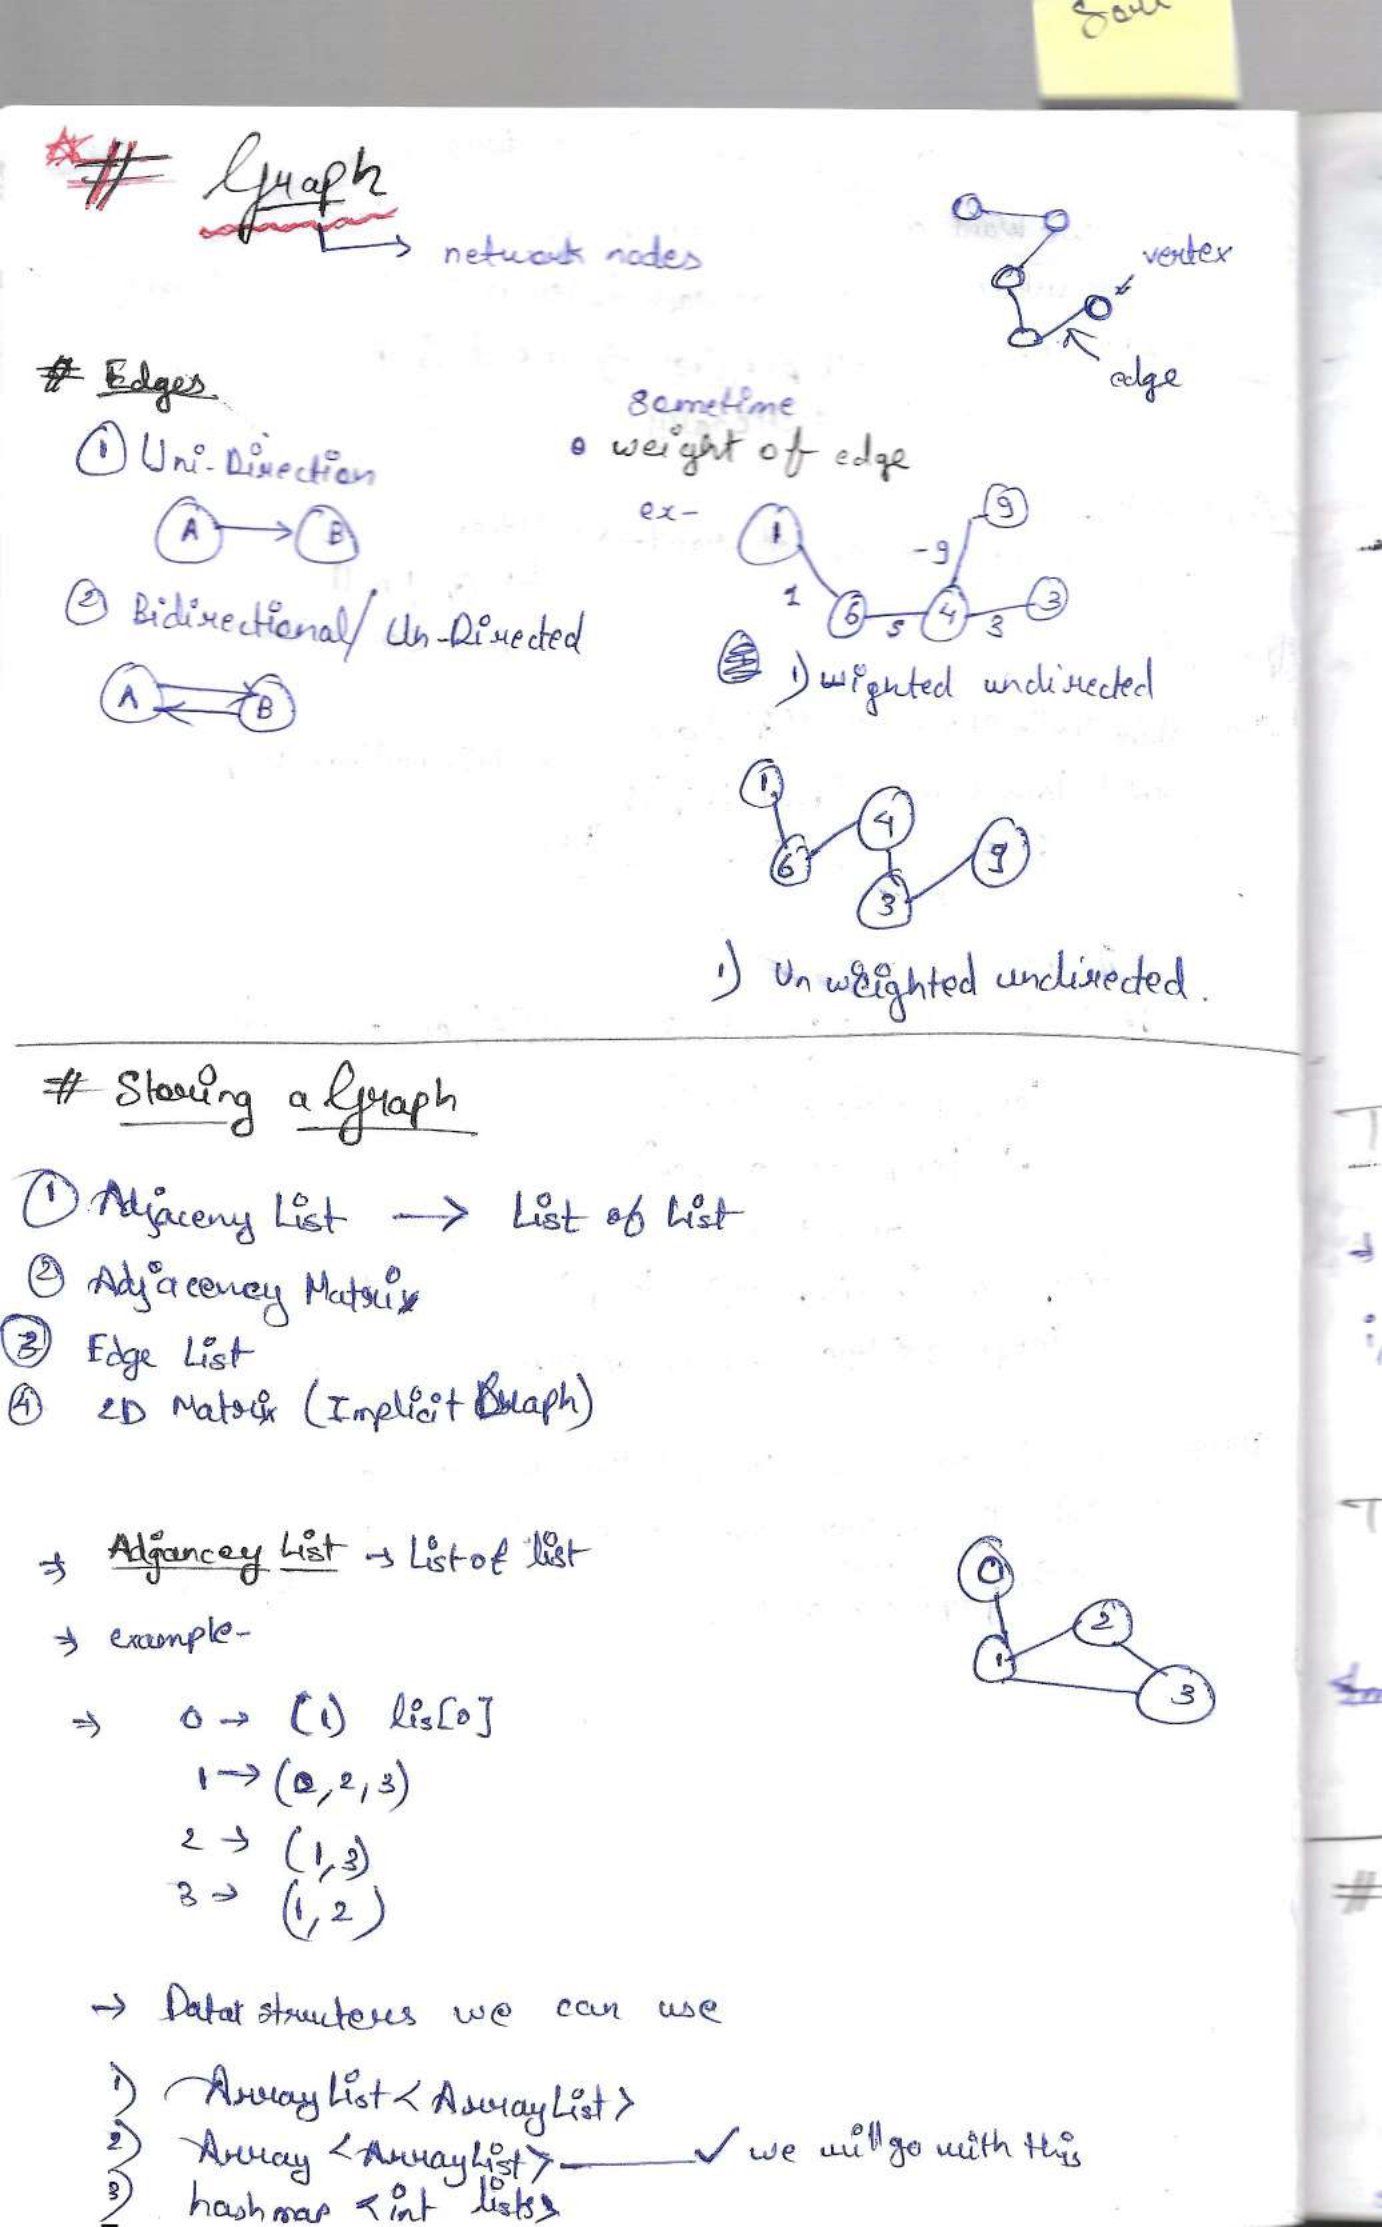 # Graph
network nodes
vertex
edge
# Edges
① Uni-Direction
A B
② Bidirectional/ Un-Directed
A B
sometime
weight of edge
ex-
1 9
-9
1 6 5 4 3 3
1) wighted undirected
1 4
6 9
3
1) Un weighted undirected.
# Storing a Graph
① Adjaceny List → List of List
② Adjacency Matrix
③ Edge List
④ 2D Matrix (Implicit Graph)
⇒ Adjancey List → List of list
⇒ example-
0
2
1
3
⇒ 0 → (1) lis[0]
1 → (0, 2, 3)
2 → (1, 3)
3 → (1, 2)
→ Data structeres we can use
1) ArrayList < ArrayList >
2) Array < ArrayList > ✓ we will go with this
3) hashmap < int lists >
#